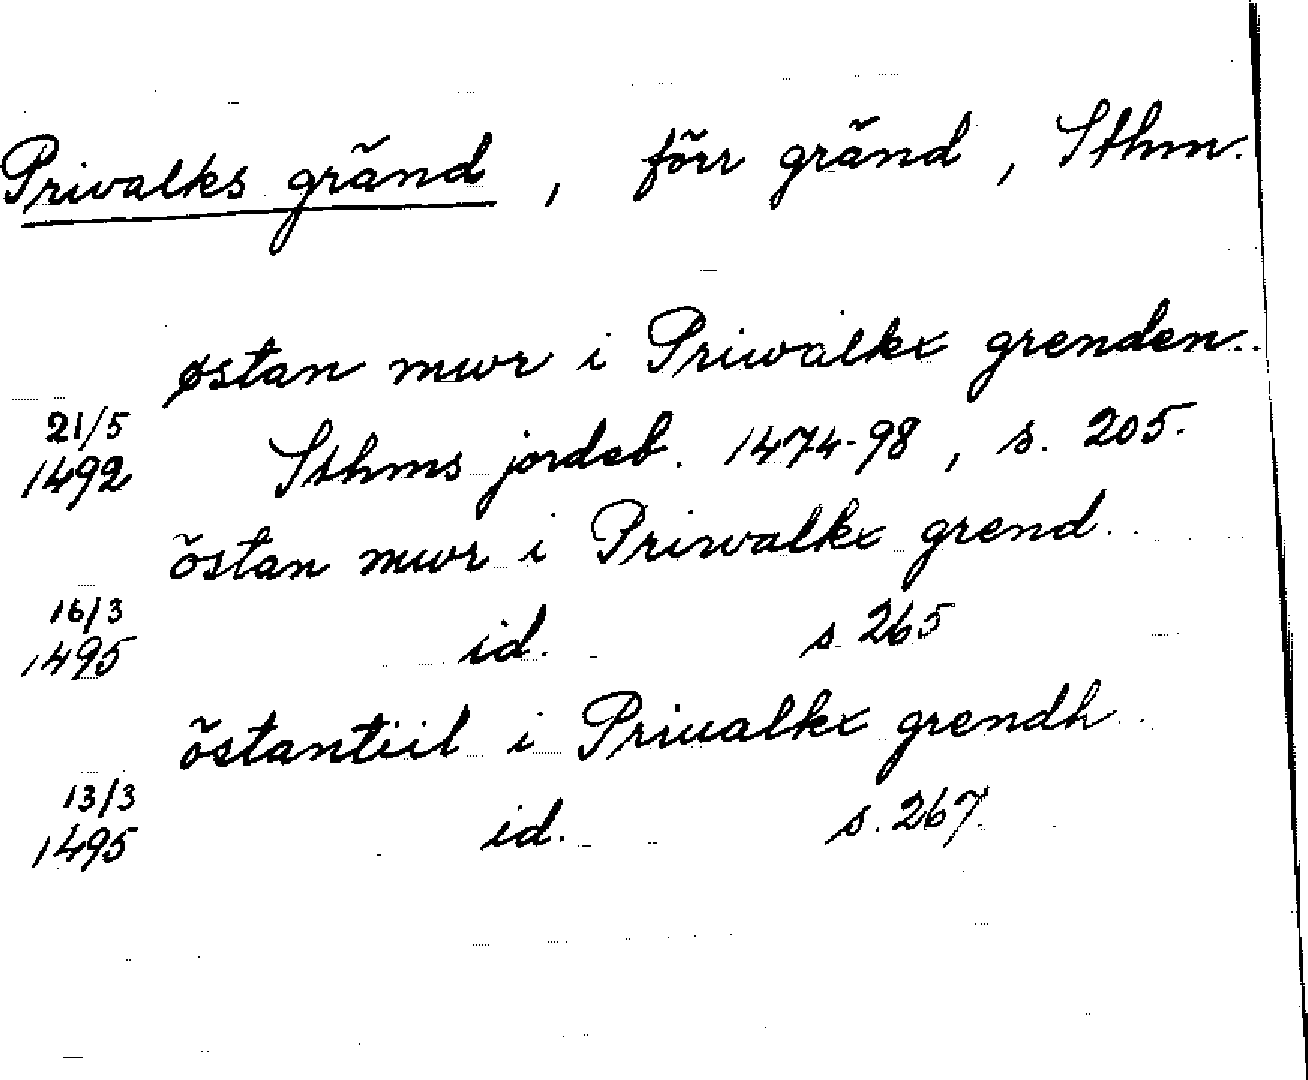 Privalks gränd, förr gränd, Sthm.
østan mwr i Priwalkx grenden..
21/5
1492 Sthms jordeb. 1474-98, s. 205.
östan mwr i Priwalkx grend
16/3
1495 id. s 265
östantiil i Priualkx grendh
13/3
1495 id. s. 267.